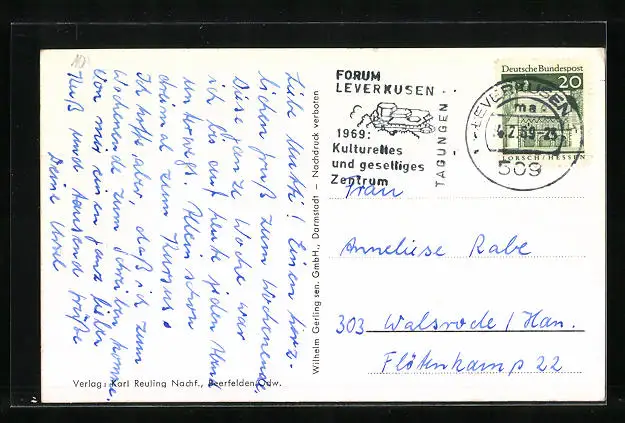 10
Liebe Mutti! Einen herz-
lichen Gruß zum Wochenende.
Diese ganze Woche war
ich bis auf heute jeden Abend
unterwegs. Allein schon
dreimal zum Kursus.
Ich hoffe aber, daß ich zum
Wochenende zum Schreiben komme.
Von mir einen ganz lieben
Kuß und tausend Grüße
Deine Ursel
Verlag: Karl Reuling Nachf., Beerfelden/Odw.
Wilhelm Gerling sen. GmbH., Darmstadt — Nachdruck verboten
FORUM
LEVERKUSEN
1969:
Kulturelles
und geselliges
Zentrum
TAGUNGEN
LEVERKUSEN 1
ma
2.69-23
509
Deutsche Bundespost
20
LORSCH/HESSEN
Frau
Anneliese Rabe
303 Walsrode / Han.
Flötenkamp 22